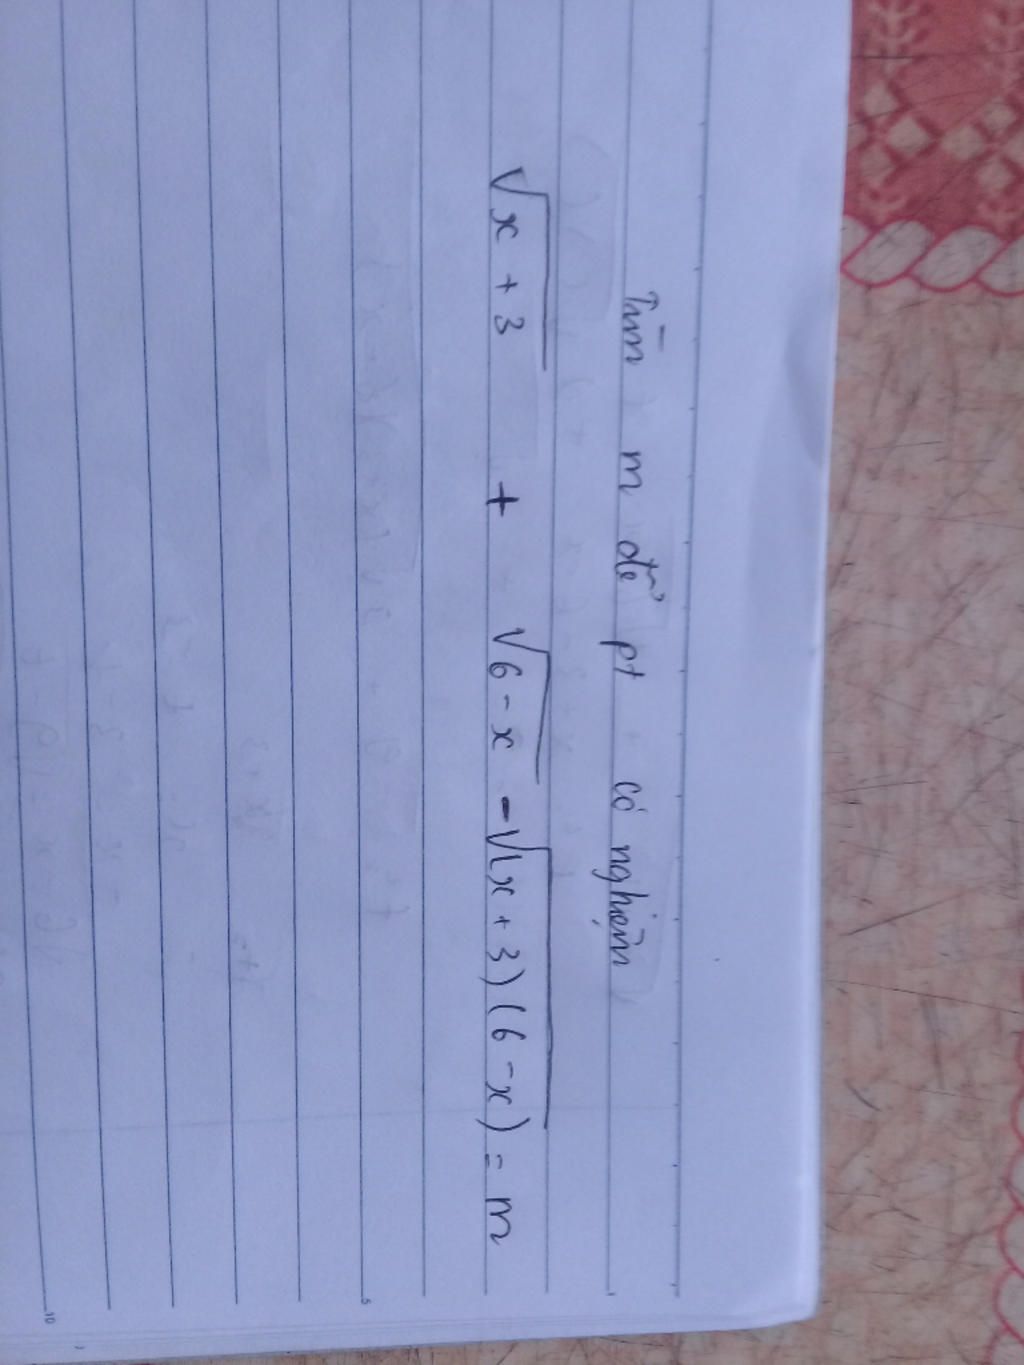 Tìm m để pt có nghiệm
√x + 3 + √6 - x - √(x + 3)(6 - x) = m
5
10